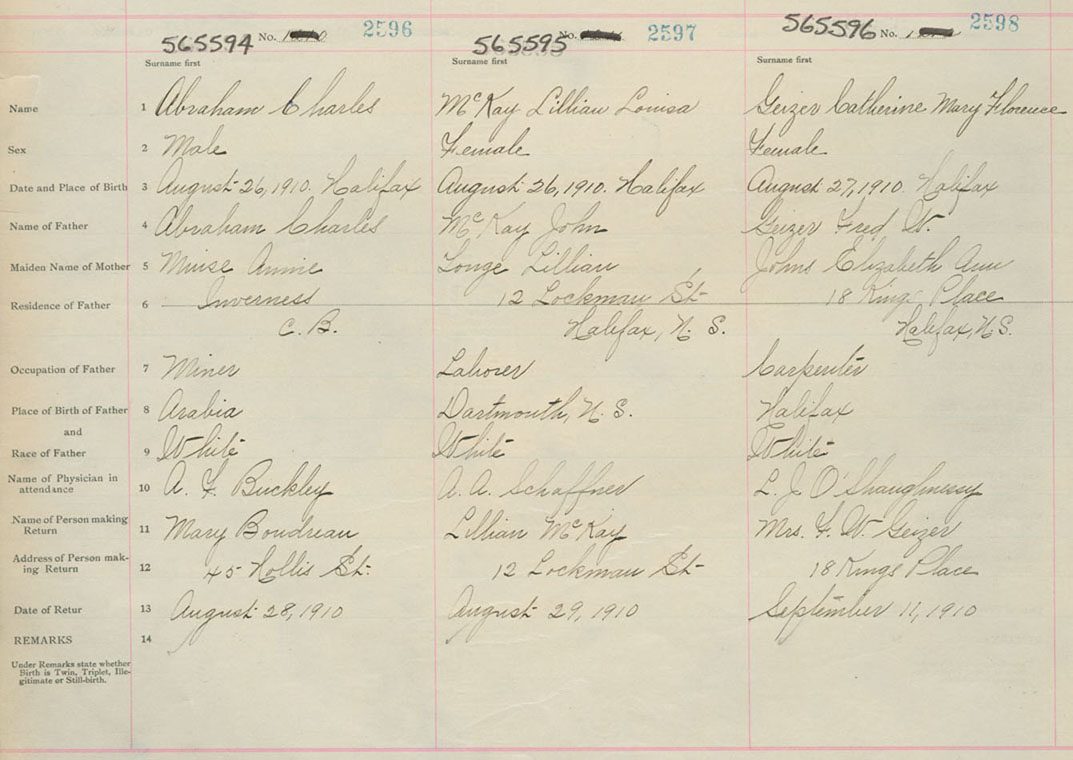 565594 No. 2596 565595 No. 2597 565596 No. 2598
Surname first Surname first Surname first
Name 1 Abraham Charles McKay Lillian Louisa Geizer Catherine Mary Florence
Sex 2 Male Female Female
Date and Place of Birth 3 August 26, 1910. Halifax August 26, 1910. Halifax August 27, 1910. Halifax
Name of Father 4 Abraham Charles McKay John Geizer Fred W.
Maiden Name of Mother 5 Muise Annie Longe Lillian Johns Elizabeth Ann
Residence of Father 6 Inverness 12 Lockman St 18 Kings Place
C. B. Halifax, N. S. Halifax, N.S.
Occupation of Father 7 Miner Laborer Carpenter
Place of Birth of Father 8 Arabia Dartmouth, N. S. Halifax
and
Race of Father 9 White White White
Name of Physician in
attendance 10 A. F. Buckley A. A. Schaffner L. J. O'Shaughnessy
Name of Person making
Return 11 Mary Boudreau Lillian McKay Mrs. F. W. Geizer
Address of Person mak-
ing Return 12 45 Hollis St. 12 Lockman St 18 Kings Place
Date of Retur 13 August 28, 1910 August 29, 1910 September 11, 1910
REMARKS 14
Under Remarks state whether
Birth is Twin, Triplet, Ille-
gitimate or Still-birth.